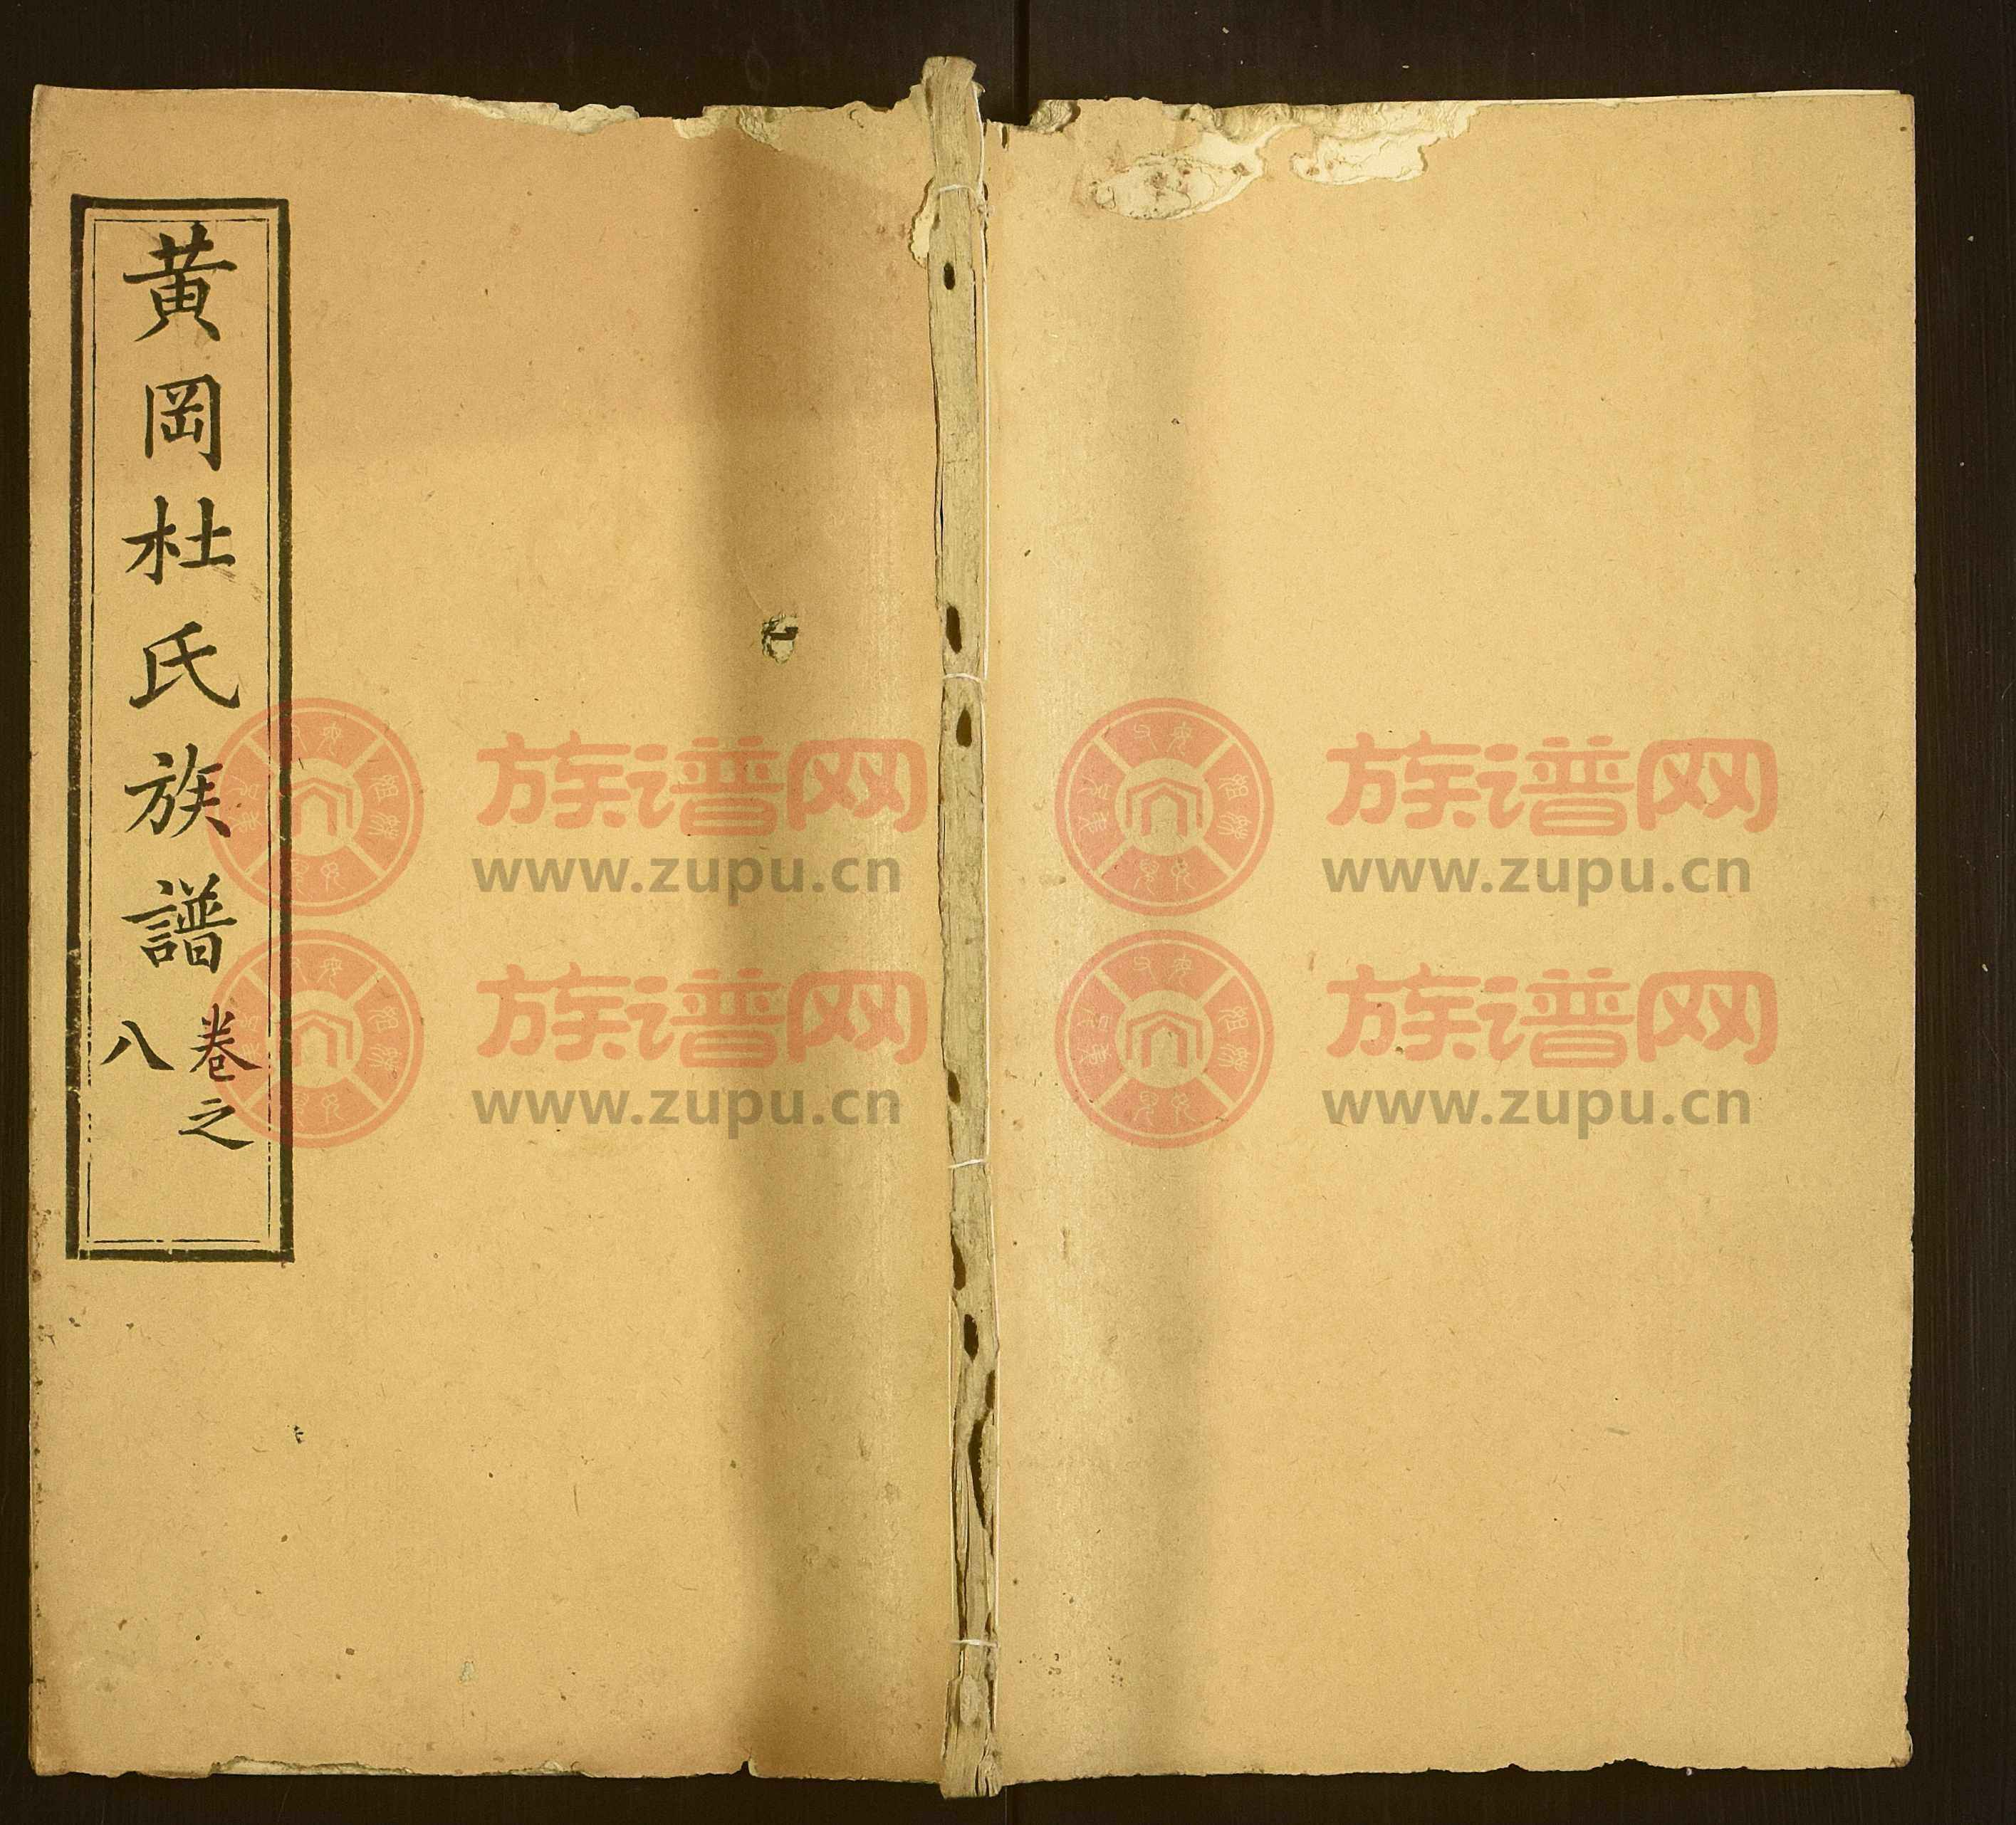 黄岡杜氏族譜
卷之
八
族谱网
www.zupu.cn
族谱网
www.zupu.cn
族谱网
www.zupu.cn
族谱网
www.zupu.cn